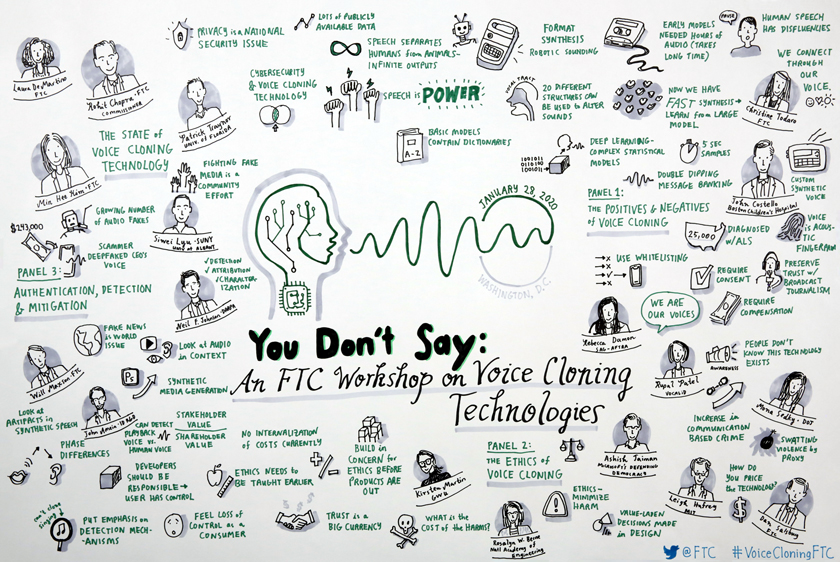 Laura DeMartino
FTC
Rohit Chopra-FTC
Commissioner
PRIVACY is a NATIONAL
SECURITY ISSUE
LOSS of PUBLICLY
AVAILABLE DATA
SPEECH SEPARATES
HUMANS from ANIMALS-
INFINITE OUTPUTS
FORMAT
SYNTHESIS
ROBOTIC SOUNDING
EARLY MODELS
NEEDED HOURS of
AUDIO (TAKES
LONG TIME)
PAUSE
HUMAN SPEECH
HAS DISFLUENCIES
WE CONNECT
THROUGH
OUR
VOICE.
Christine Todaro
FTC
THE STATE of
VOICE CLONING
TECHNOLOGY
Patrick Traynor
UNIV. of FLORIDA
CYBERSECURITY
& VOICE CLONING
TECHNOLOGY
SPEECH is POWER
VOCAL TRACT
20 DIFFERENT
STRUCTURES CAN
BE USED to ALTER
SOUNDS
NOW WE HAVE
FAST SYNTHESIS→
LEARN from LARGE
MODEL.
BASIC MODELS
CONTAIN DICTIONARIES
A-Z
DEEP LEARNING-
COMPLEX STATISTICAL
MODELS
5 SEC
SAMPLES
DOUBLE DIPPING
MESSAGE BANKING
John Costello
Boston Children's Hospital
CUSTOM
SYNTHETIC
VOICE
Min Hee Kim-FTC
FIGHTING FAKE
MEDIA is a
COMMUNITY
EFFORT
$243,000
GROWING NUMBER
of AUDIO FAKES
SCAMMER
DEEPFAKED CEO'S
VOICE
Siwei Lyu-SUNY
UNIV. at ALBANY
PANEL 3:
AUTHENTICATION, DETECTION
& MITIGATION
✓DETECTION
✓ATTRIBUTION
✓CHARACTER-
IZATION
Neil F. Johnson-DARPA
JANUARY 28, 2020
WASHINGTON, D.C.
PANEL 1:
THE POSITIVES & NEGATIVES
of VOICE CLONING
25,000
DIAGNOSED
w/ALS
VOICE is
ACOUS-
TIC
FINGERPRINT
USE WHITELISTING
REQUIRE
CONSENT
PRESERVE
TRUST w/
BROADCAST
JOURNALISM
WE ARE
OUR VOICES
REQUIRE
COMPENSATION
Rebecca Damon
SAG-AFTRA
You Don't Say:
An FTC Workshop on Voice Cloning
Technologies
FAKE NEWS
is WORLD
ISSUE
LOOK at AUDIO
in CONTEXT
Will Maxson FTC
Ps
SYNTHETIC
MEDIA GENERATION
Rupal Patel
VOCALID
AWARENESS
PEOPLE DON'T
KNOW THIS TECHNOLOGY
EXISTS
Mona Sedky-DOJ
LOOK at
ARTIFACTS in
SYNTHETIC SPEECH
PHASE
DIFFERENCES
CAN DETECT
PLAYBACK
VOICE vs.
HUMAN VOICE
STAKEHOLDER
VALUE
SHAREHOLDER
VALUE
NO INTERNALIZATION
of COSTS CURRENTLY
BUILD in
CONCERN for
ETHICS BEFORE
PRODUCTS ARE
OUT
Kirsten Martin
GWU
PANEL 2:
THE ETHICS of
VOICE CLONING
Ashish Jaiman
MICROSOFT'S DEFENDING
DEMOCRACY
INCREASE in
COMMUNICATION
BASED CRIME
SWATTING
VIOLENCE by
PROXY
DEVELOPERS
SHOULD BE
RESPONSIBLE→
USER HAS CONTROL
ETHICS NEEDS to
BE TAUGHT EARLIER
ETHICS-
MINIMIZE
HARM
Leigh Hafrey
MIT
HOW DO
YOU PRICE
the TECHNOLOGY?
$
Dan Salsburg
FTC
PUT EMPHASIS on
DETECTION MECH-
ANISMS
FEEL LOSS of
CONTROL AS a
CONSUMER
TRUST is a
BIG CURRENCY
WHAT is the
COST of the HARMS?
Rosalyn W. Berne
Natl Academy of
Engineering
VALUE-LADEN
DECISIONS MADE
in DESIGN
@FTC #VoiceCloningFTC